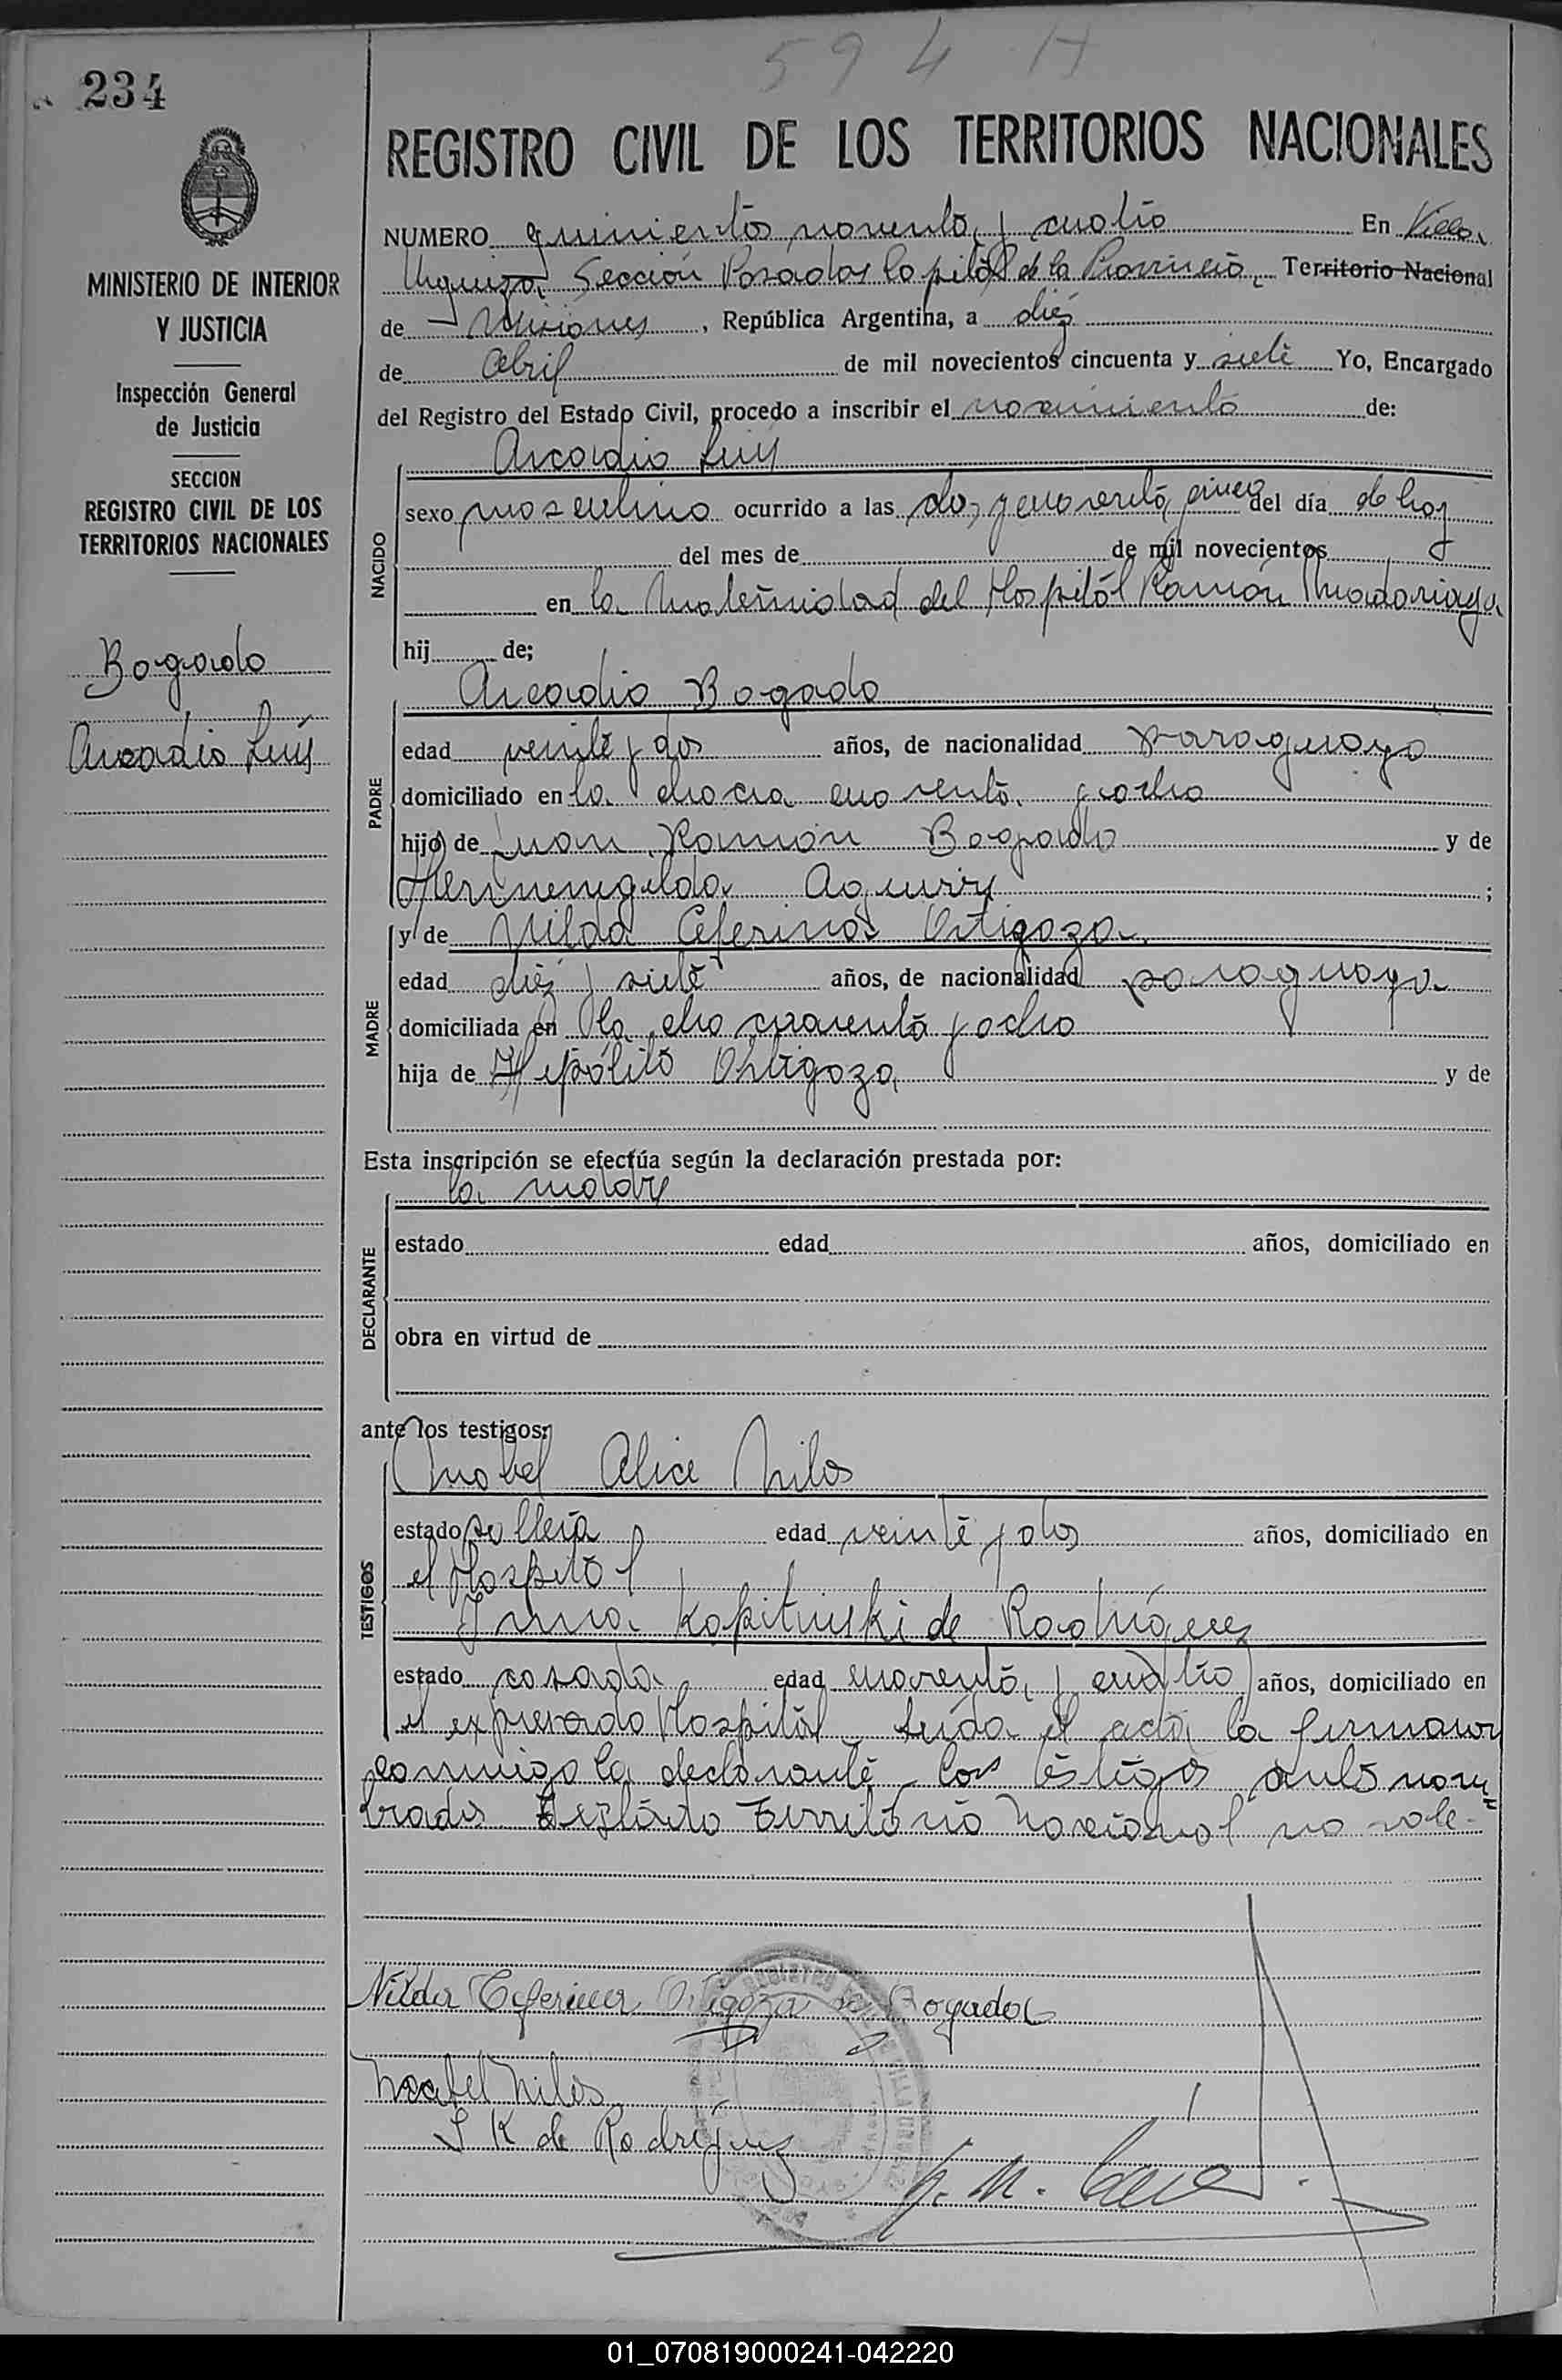 594 H
234
REGISTRO CIVIL DE LOS TERRITORIOS NACIONALES
MINISTERIO DE INTERIOR
Y JUSTICIA
Inspección General
de Justicia
SECCION
REGISTRO CIVIL DE LOS
TERRITORIOS NACIONALES
Bogado
Arcadio Luis
NUMERO quinientos noventa y cuatro En Villa
Urquiza Sección Posadas Capital de la Provincia, Territorio Nacional
de Misiones, República Argentina, a diez
de Abril de mil novecientos cincuenta y siete Yo, Encargado
del Registro del Estado Civil, procedo a inscribir el nacimiento de:
NACIDO
Arcadio Luis
sexo masculino ocurrido a las dos y cuarenta cinco del día de hoy
del mes de de mil novecientos
en la Maternidad del Hospital Ramón Madariaga
hij de;
PADRE
Arcadio Bogado
edad veinte y dos años, de nacionalidad paraguaya
domiciliado en la chacra cuarenta y ocho
hijo de Juan Ramón Bogado y de
Hermenegilda Aguirre ;
MADRE
y de Nilda Ceferina Ortigoza
edad diez y siete años, de nacionalidad paraguaya
domiciliada en la cha cuarenta y ocho
hija de Hipólito Ortigoza y de
Esta inscripción se efectúa según la declaración prestada por:
DECLARANTE
la madre
estado edad años, domiciliado en
obra en virtud de
ante los testigos:
TESTIGOS
Mabel Alice Milos
estado soltera edad veinte y dos años, domiciliado en
el Hospital
Irma Kopituiski de Rodríguez
estado casada edad cuarenta y cuatro años, domiciliado en
el expresado Hospital leída el acta la firmaron
conmigo la declarante los testigos ante nom-
brados Testado Territorio Nacional no vale-
Nilda Ceferina Ortigoza de Bogado
Mabel Milos
I K de Rodríguez
01_070819000241-042220